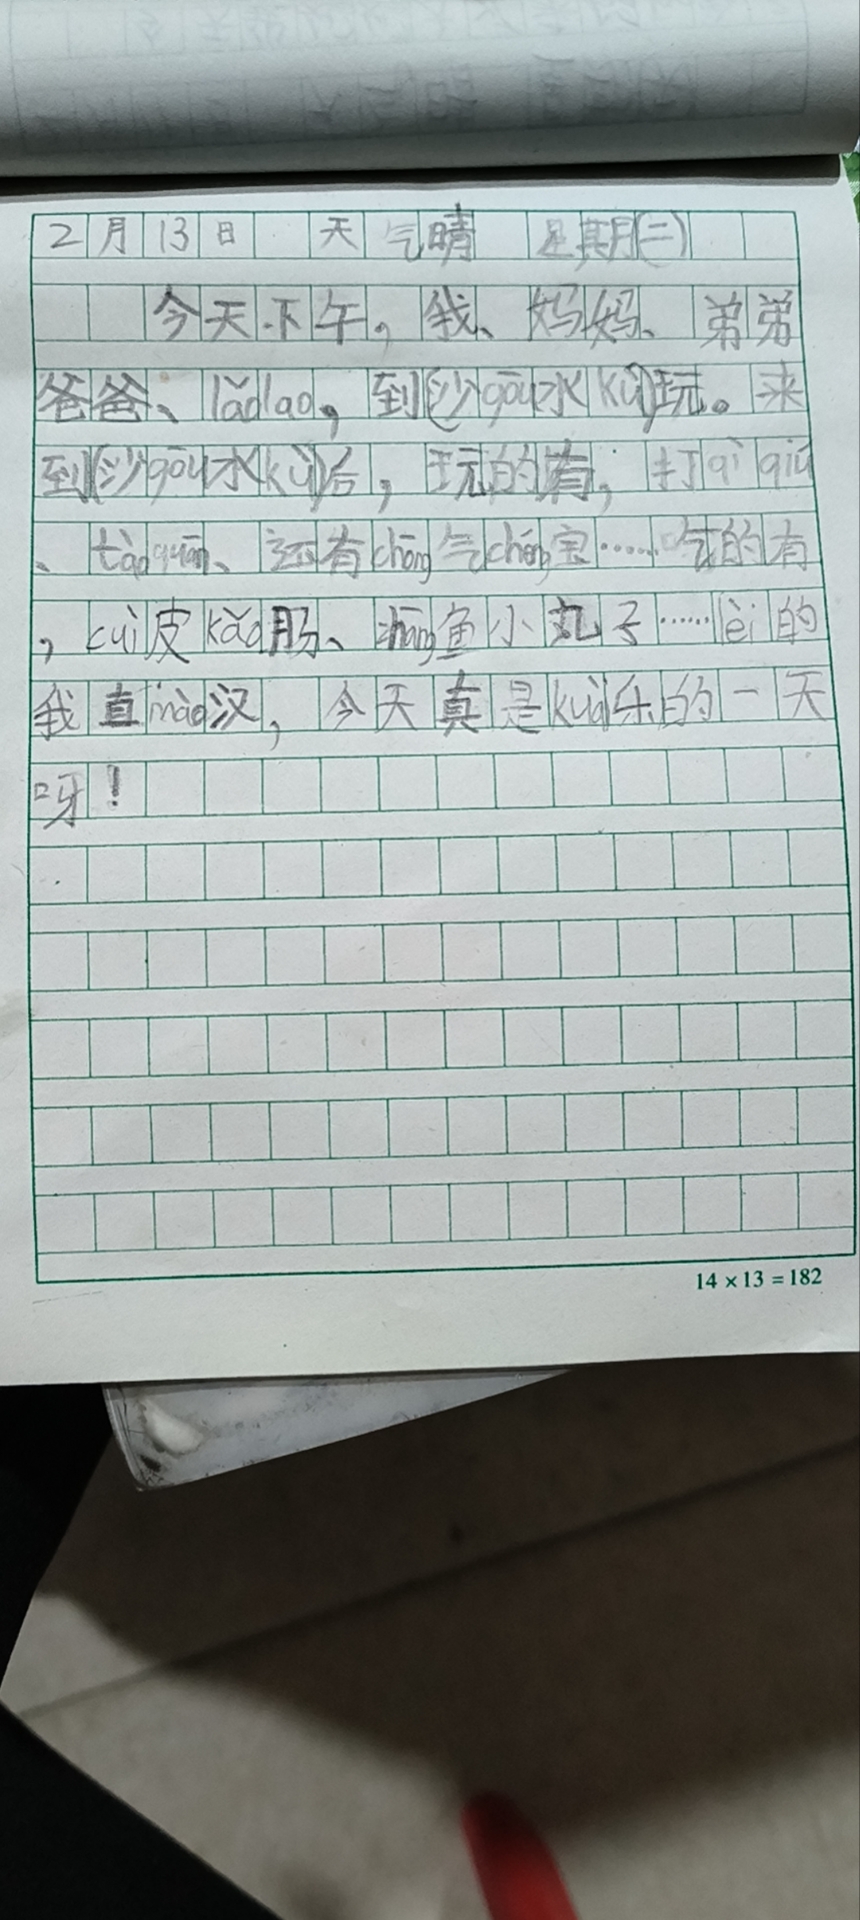 2月13日 天气晴 星期(二)
今天下午，我、妈妈、弟弟
爸爸、lǎolao，到(沙gōu水kù)玩。来
到(沙gōu水kù)后，玩的有，打qì qiú
、tàoquān、还有chōng气chéng宝……吃的有
，cuì皮kǎo肠、zhāng鱼小丸子……lèi的
我直mào汉，今天真是kuài乐的一天
呀！
14×13=182